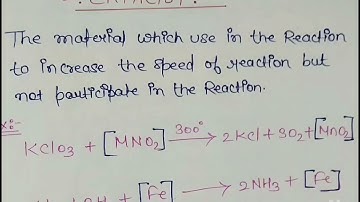 : CATALYST :
The material which use in the Reaction
to increase the speed of reaction but
not participate in the Reaction.
Ex:-
KClO3 + [MNO2] 300° → 2KCl + 3O2 + [MnO2]
+ [Fe] → 2NH3 + [Fe]